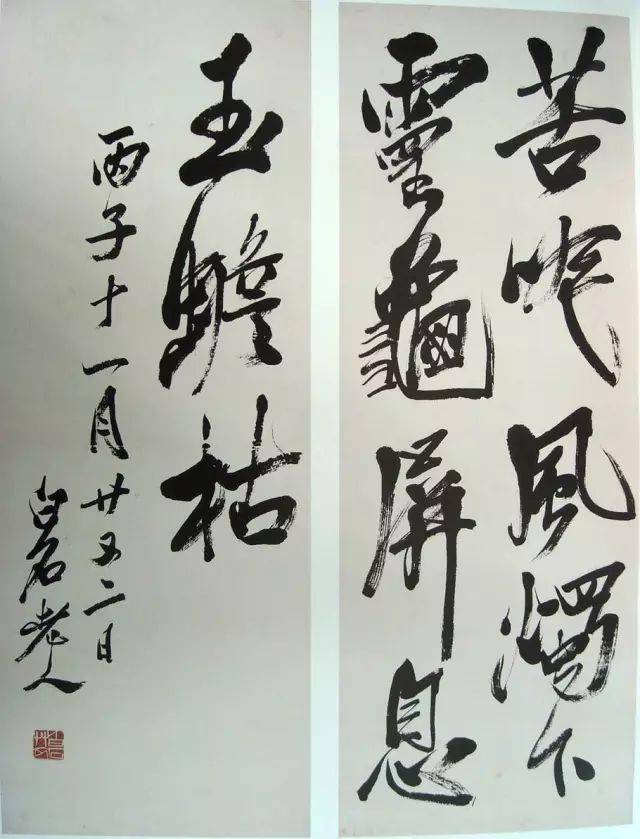 苦吟風燭下
靈龜屏息
玉蟾枯
丙子十一月廿又二日
白石老人